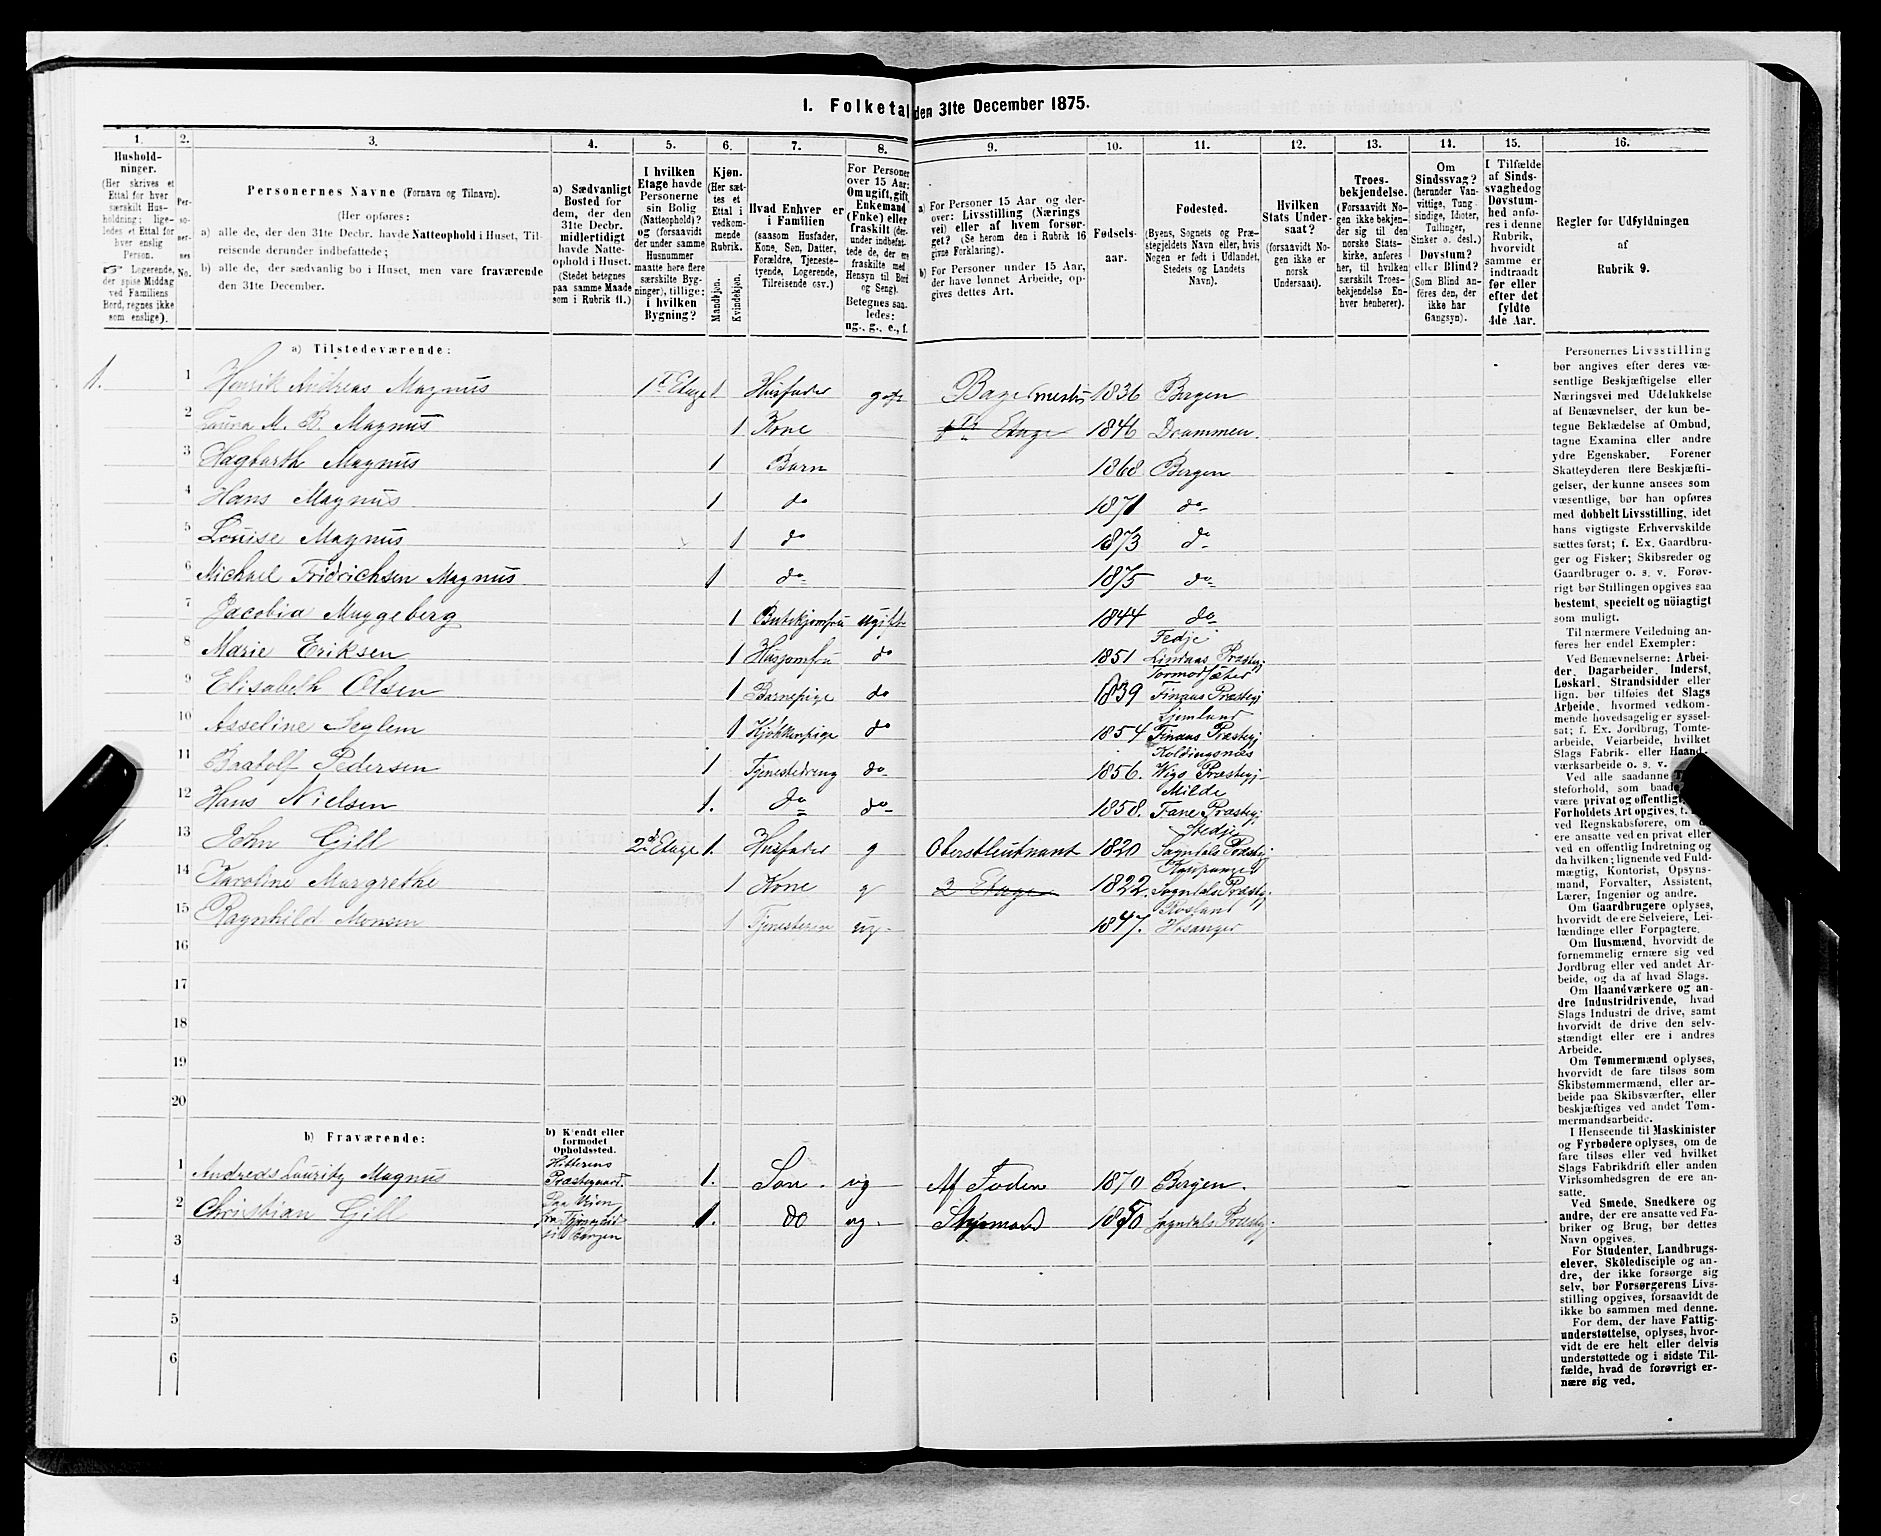 I. Folketal den 31te December 1875.
1.
Husholdninger.
(Her skrives et Ettal for hver særskilt Husholdning; ligeledes et Ettal for hver enslig Person.
☞ Logerende, der spise Middag ved Familiens Bord, regnes ikke som enslige).
2.
Personernes No.
3.
Personernes Navne (Fornavn og Tilnavn).
(Her opføres:
a) alle de, der den 31te Decbr. havde Natteophold i Huset, Tilreisende derunder indbefattede;
b) alle de, der sædvanlig bo i Huset, men vare fraværende den 31te December.
4.
a) Sædvanligt Bosted for dem, der den 31te Decbr. midlertidigt havde Natteophold i Huset.
(Stedet betegnes paa samme Maade som i Rubrik 11.)
5.
I hvilken Etage havde Personerne sin Bolig (Natteophold)? og (forsaavidt der under samme Husnummer maatte høre flere særskilte Bygninger), tillige: i hvilken Bygning?
6.
Kjøn.
(Her sættes et Ettal i vedkommende Rubrik.
Mandkjøn.
Kvindekjøn.
7.
Hvad Enhver er i Familien
(saasom Husfader, Kone, Søn, Datter, Forældre, Tjenestetyende, Logerende, Tilreisende osv.)
8.
For Personer over 15 Aar: Om ugift, gift, Enkemand (Enke) eller fraskilt (derunder indbefattede de, der ere fraskilte med Hensyn til Bord og Seng).
Betegnes saaledes: ug., g., e., f.
9.
a) For Personer 15 Aar og derover: Livsstilling (Næringsvei) eller af hvem forsørget? (Se herom den i Rubrik 16 givne Forklaring).
b) For Personer under 15 Aar, der have lønnet Arbeide, opgives dettes Art.
10.
Fødselsaar.
11.
Fødested.
(Byens, Sognets og Præstegjeldets Navn eller, hvis Nogen er født i Udlandet, Stedets og Landets Navn).
12.
Hvilken Stats Undersaat?
(forsaavidt Nogen ikke er norsk Undersaat).
13.
Troesbekjendelse.
(Forsaavidt Nogen ikke bekjender sig til den norske Statskirke, anføres her, til hvilken særskilt Troesbekjendelse Enhver henhører).
14.
Om Sindssvag? (herunder Vanvittige, Tungsindige, Idioter, Tullinger, Sinker o. desl.) Døvstum? eller Blind?
(Som Blind anføres den, der ikke har Gangsyn).
15.
I Tilfælde af Sindssvaghed og Døvstumhed anføres i denne Rubrik, hvorvidt samme er indtraadt før eller efter det fyldte 4de Aar.
16.
Regler for Udfyldningen af Rubrik 9.
a) Tilstedeværende:
1. 1 Henrik Andreas Magnus 1 Etage 1 Husfader gift Bagermester 1836 Bergen
2 Laura M. B. Magnus 1 Kone Etage 1846 Drammen.
3 Hagbarth Magnus 1 Barn 1868 Bergen
4 Hans Magnus 1 do 1871 do
5 Louise Magnus 1 do 1873 do
6 Michael Fridrichsen Magnus 1 do 1875 do
7 Jacobia Muggeberg 1 Butikjomfru ugift 1844 do
8 Marie Eriksen 1 Husjomfru do 1851 Fedje Lindaas Præstegj
9 Elisabeth Olsen 1 Barnepige do 1839 Finaas Præstegj
10 Asseline Seglem 1 Kjøkkenpige do 1854 Finaas Præstegj
11 Baatolf Pedersen 1 Tjenestedreng do 1856. Præstegj
12 Hans Nielsen 1. do do 1858. Milde Fane Præstegj
13 John Gill 2 Etage 1. Husfader g Oberstleutnant 1820 Stedje Sogndals Præstegj
14 Karoline Margrethe 1 Kone g 2 Etage 1822. Kaupanger Sogndals Præstegj
15 Ragnhild Monsen 1 Tjenesterinne ug. 1847. Hosanger
16
17
18
19
20
b) Fraværende:
b) Kjendt eller formodet Opholdssted.
1 Andreas Lauritz Magnus Hitterens Præstegaard 1. Søn. ug Af Faderen 1870 Bergen.
2 Christian Gill Paa Reisen fra til Bergen 1. do ug. Styrmand 1850 Sogndals Præstegj.
3
4
5
6
Personernes Livsstilling
bør angives efter deres væ-
sentlige Beskjæftigelse eller
Næringsvei med Udelukkelse
af Benævnelser, der kun be-
tegne Beklædelse af Ombud,
tagne Examina eller andre
ydre Egenskaber. Forener
Skatteyderen flere Beskjæfti-
gelser, der kunne ansees som
væsentlige, bør han opføres
med dobbelt Livsstilling, idet
hans vigtigste Erhvervskilde
sættes først; f. Ex. Gaardbru-
ger og Fisker; Skibsreder og
Gaardbruger o. s. v. Forøv-
rigt bør Stillingen opgives saa
bestemt, specielt og nöiagtigt
som muligt.
Til nærmere Veiledning an-
føres her endel Exempler:
Ved Benævnelserne: Arbei-
der, Dagarbeider, Inderst,
Løskarl, Strandsidder eller
lign. bør tilføies det Slags
Arbeide, hvormed vedkom-
mende hovedsagelig er syssel-
sat; f. Ex. Jordbrug, Tomte-
arbeide, Veiarbeide, hvilket
Slags Fabrik- eller Haand-
værksarbeide o. s. v.
Ved alle saadanne
steforhold, som baade
være privat og offentligt,
Forholdets Art opgives,
ved Regnskabsførere, om
ere ansatte ved en privat eller
ved en offentlig Indretning og
da hvilken; lignende ved Fuld-
mægtig, Kontorist, Opsyns-
mand, Forvalter, Assistent,
Lærer, Ingeniør og andre.
Om Gaardbrugere oplyses,
hvorvidt de ere Selveiere, Lei-
lændinge eller Forpagtere.
Om Husmænd, hvorvidt de
fornemmelig ernære sig ved
Jordbrug eller ved andet Ar-
beide, og da af hvad Slags.
Om Haandværkere og an-
dre Industridrivende, hvad
Slags Industri de drive, samt
hvorvidt de drive den selv-
stændigt eller ere i andres
Arbeide.
Om Tømmermænd oplyses,
hvorvidt de fare tilsøs som
Skibstømmermænd, eller ar-
beide paa Skibsværfter, eller
beskjæftiges ved andet Tøm-
mermandsarbeide.
I Henseende til Maskinister
og Fyrbødere oplyses, om de
fare tilsøs eller ved hvilket
Slags Fabrikdrift eller anden
Virksomhedsgren de ere an-
satte.
Ved Smede, Snedkere og
andre, der ere ansatte ved Fa-
briker og Brug, bør dettes
Navn opgives.
For Studenter, Landbrugs-
elever, Skoledisciple og an-
dre, der ikke forsørge sig
selv, bør Forsørgerens Livs-
stilling opgives, forsaavidt de
ikke bo sammen med denne.
For dem, der have Fattig-
understøttelse, oplyses, hvor-
vidt de ere helt eller delvis
understøttede og i sidste Til-
fælde, hvad de forøvrigt er-
nære sig ved.